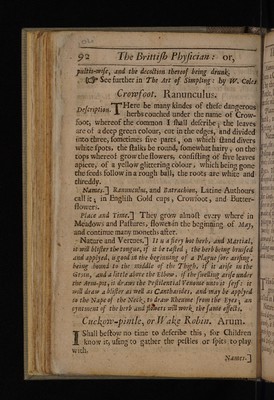 92 The Brittish Physician: or,
poltis-wise, and the decoction thereof being drunk.
☞ See further in The Art of Simpling: by W. Coles
Crowfoot. Ranunculus.
Description. THere be many kindes of these dangerous
herbs couched under the name of Crow-
foot, whereof the common I shall describe; the leaves
are of a deep green colour, cut in the edges, and divided
into three, sometimes five parts, on which stand divers
white spots, the stalks be round, somewhat hairy, on the
tops whereof grow the flowers, consisting of five leaves
apiece, of a yellow glittering colour, which being gone
the seeds follow in a rough ball, the roots are white and
threddy.
Names.] Ranunculus, and Batrachion, Latine Authours
call it; in English Gold cups, Crowfoot, and Butter-
flowers.
Place and Time.] They grow almost every where in
Meadows and Pastures, flower in the beginning of May,
and continue many moneths after.
Nature and Vertues.] It is a fiery hot herb, and Martial,
it will blister the tongue, if it be tasted; the herb being bruised
and applyed, is good in the beginning of a Plague sore arising,
being bound to the middle of the Thigh, if it arise in the
Groin, and a little above the Elbow, if the swelling arise under
the Arm-pit, it draws the Pestilential Venome unto it self: it
will draw a blister as well as Cantharides, and may be applyed
to the Nape of the Neck, to draw Rheume from the Eyes; an
oyntment of the herb and flowers will work the same effects.
Cuckow-pintle, or Wake Robin. Arum.
I Shall bestow no time to describe this, for Children
know it, using to gather the pestles or spits to play
with.
Names.]